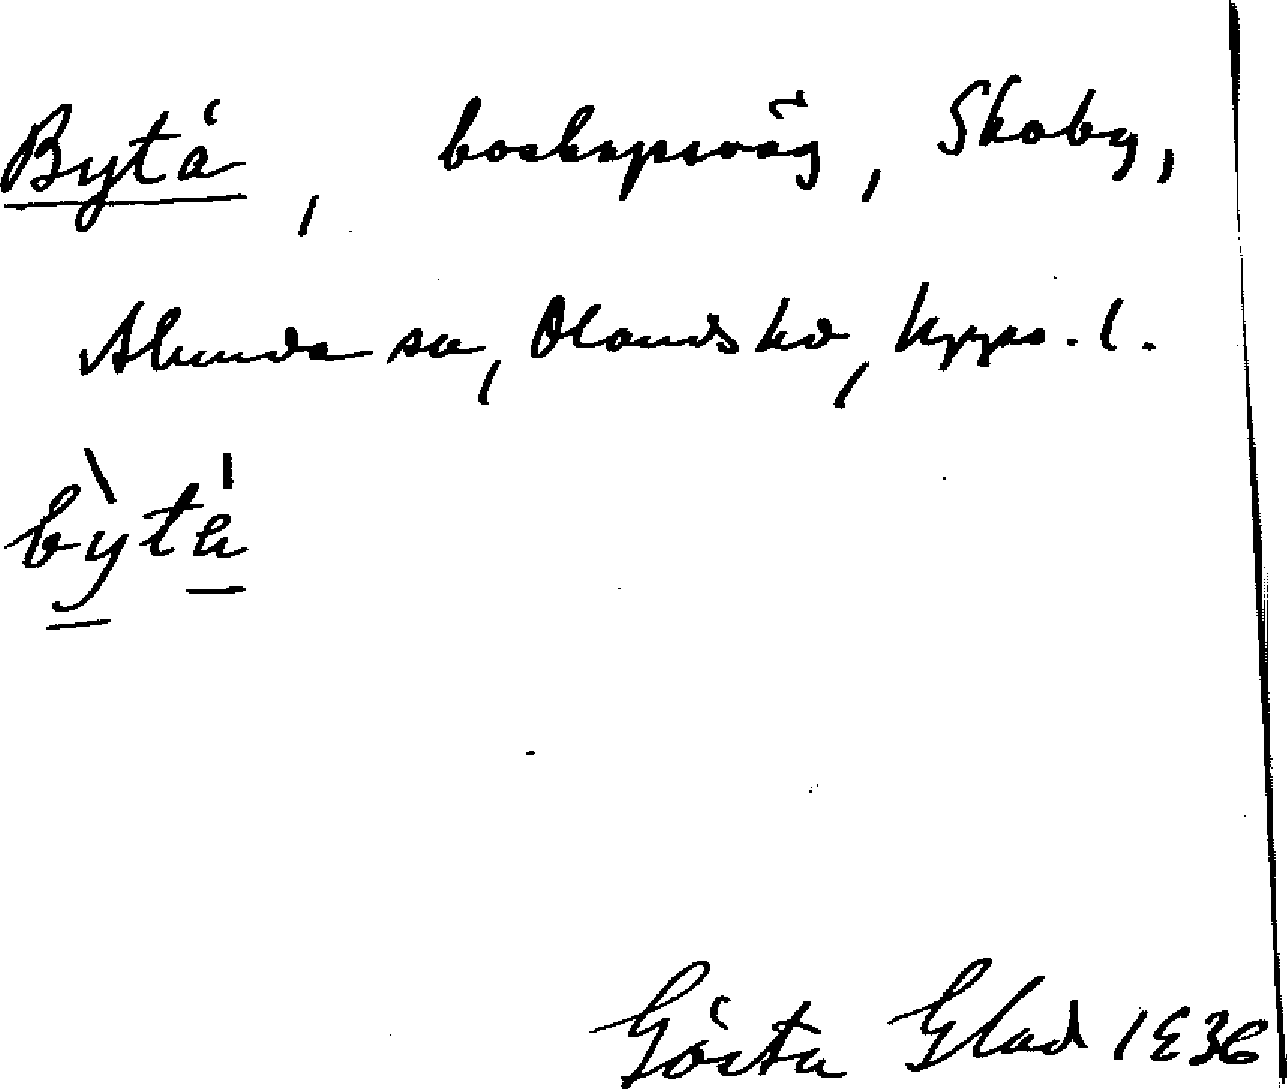 Bytå, boskapsväg, Skoby,
Alunda sn, Olands hd, Upps. l.
bỳtå̍
Gösta Glad 1936